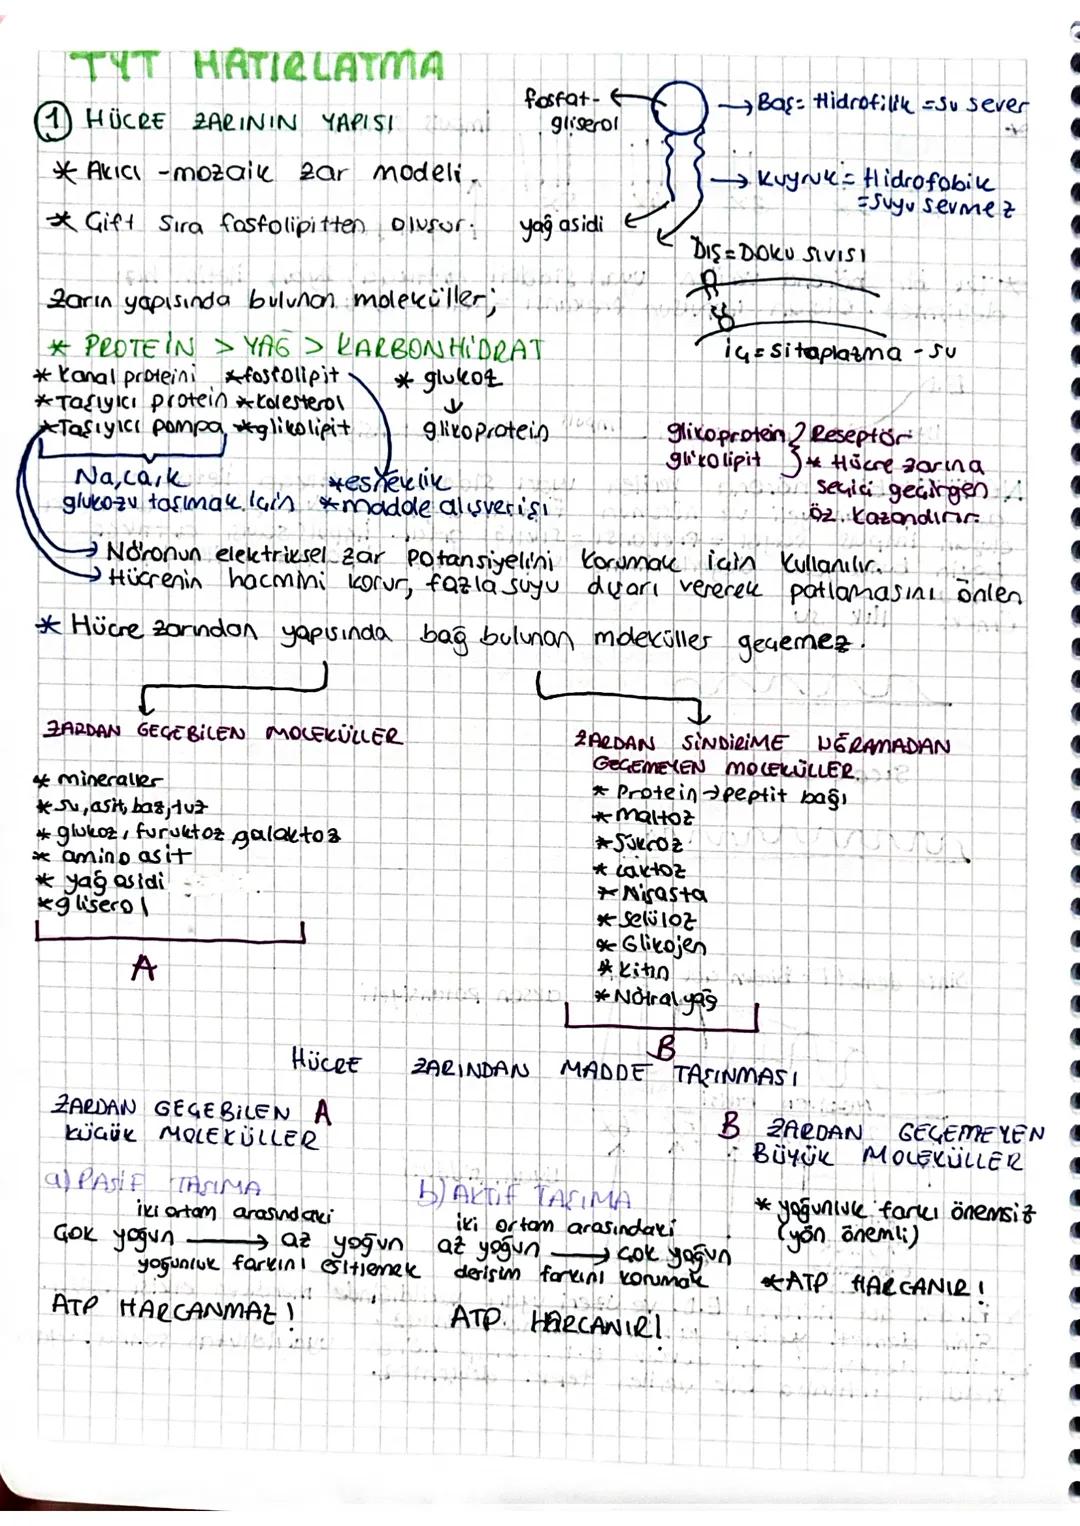 TYT HATIRLATMA
① HÜCRE ZARININ YAPISI
* Akıcı -mozaik zar modeli.
* Çift Sıra fosfolipitten oluşur.
fosfat-
gliserol
Baş= Hidrofilik =Su sever
Kuyruk= Hidrofobik
=Suyu sevmez
yağ asidi
DIŞ=DOKU SIVISI
İç=Sitoplazma-su
Zarın yapısında bulunan moleküller;
* PROTEİN > YAĞ > KARBONHİDRAT
* Kanal proteini *fosfolipit * glukoz
*Taşıyıcı protein *kolesterol
*Taşıyıcı pompa, *glikolipit glikoprotein
Na,ca,k *esneklik
glukozu taşımak için *madde alışverişi
glikoprotein Reseptör
glikolipit * Hücre zarına
seçici geçirgen
öz. kazandırır.
→ Nöronun elektriksel zar potansiyelini korumak için kullanılır.
→ Hücrenin hacmini korur, fazla suyu dışarı vererek patlamasını önler
* Hücre zarından yapısında bağ bulunan moleküller geçemez.
ZARDAN GEÇEBİLEN MOLEKÜLLER
* mineraller
* su, asit, baz, tuz
* glukoz, furuktoz galaktoz
* amino asit
* yağ asidi
*gliserol
A
ZARDAN SİNDİRİME UĞRAMADAN
GEÇEMEYEN MOLEKÜLLER
* Protein→peptit bağı
* maltoz
*Sükroz
* Laktoz
* Nişasta
* Selüloz
* Glikojen
* Kitin
* Nötral yağ
B
HÜCRE ZARINDAN MADDE TAŞINMASI
ZARDAN GEÇEBİLEN A
KÜÇÜK MOLEKÜLLER
a) PASİF TAŞIMA
iki ortam arasındaki
Çok yoğun → az yoğun
yoğunluk farkını eşitlemek
ATP HARCANMAZ!
b) AKTİF TAŞIMA
iki ortam arasındaki
az yoğun → çok yoğun
derişim farkını korumak
ATP HARCANIR!
B ZARDAN GEÇEMEYEN
BÜYÜK MOLEKÜLLER
* yoğunluk farkı önemsiz
(yön önemli)
*ATP HARCANIR!